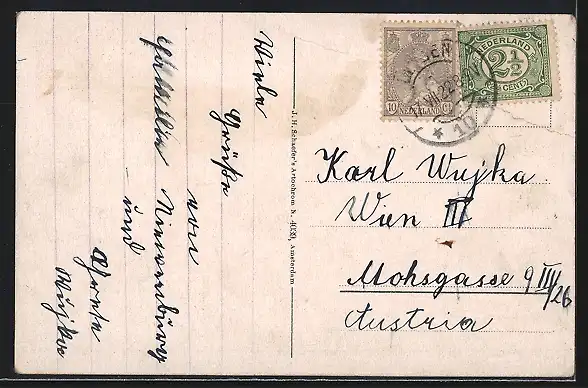 Viele
Grüße
von
Familie Nieuwenburg
und
Grete
Wujka
J. H. Schaefer's Artochrom N., Amsterdam
10 NEDERLAND
NEDERLAND
2½
CENT
22
10
Karl Wujka
Wien III
Mohsgasse 9 III/26
Austria